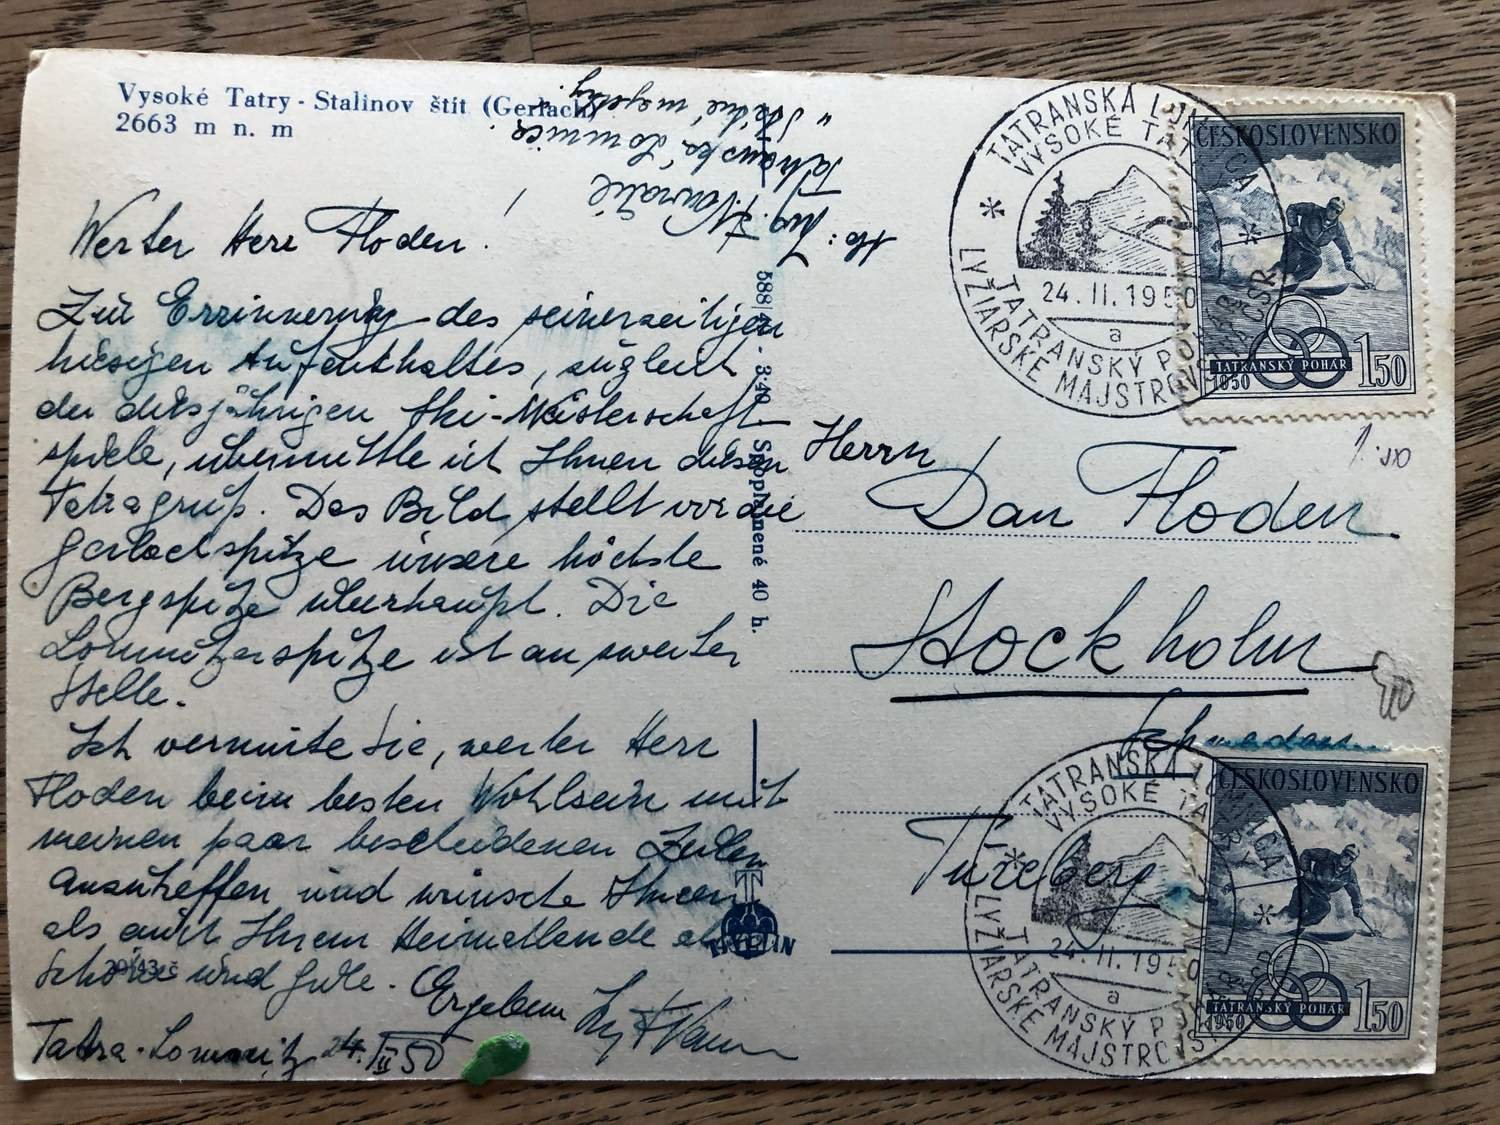 Vysoké Tatry - Stalinov štít (Gerlach)
2663 m n. m
Ing.
Tatranská Lomnica.
Werter Herr Floden!
Zur Errinnerung des seinerzeitigen
hiesigen Aufenthaltes, zugleich
der diesjährigen Ski-Meisterschaft
spiele, übermittle ich Ihnen diesen
Tatragruß. Das Bild stellt vor die
Gerlachspitze unsere höchste
Bergspitze überhaupt. Die
Lomnitzerspitze ist an zweiter
Stelle.
Ich vermute Sie, werter Herr
Floden beim besten Wohlsein mit
meinen paar bescheidenen Zeilen
anzutreffen und wünsche Ihnen
als auch Ihrem Heimatlande
Schöne und Gute. Ergebenn
Tatra-Lomnitz 24. II 50
588/ - 3.49 - Snoplatnené 40 h.
TATRAN
Herrn
Dan Floden
Stockholm
Schweden
Tureberg
TATRANSKÁ LOMNICA
VYSOKÉ TATRY
24. II. 1950
a
TATRANSKÝ POHÁR
LYŽIARSKÉ MAJSTROVSTVÁ ČSR
ČESKOSLOVENSKO
TATRANSKÝ POHÁR
1950
1·50
TATRANSKÁ LOMNICA
VYSOKÉ TATRY
24. II. 1950
a
TATRANSKÝ POHÁR
LYŽIARSKÉ MAJSTROVSTVÁ ČSR
ČESKOSLOVENSKO
TATRANSKÝ POHÁR
1950
1·50